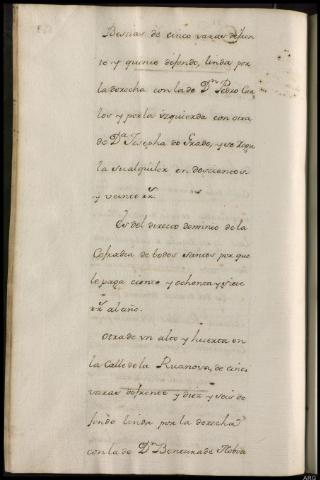 Bestias de cinco varas de fren
te y quince de fondo, linda por
la derecha con la de Dn Pedro Car
los y por la izquierda con otra
de Da Josepha de Prado, y se Regu
la su alquiler en doscientos
y veinte rx
Es del directo dominio de la
Cofradia de todos santos por que
le paga ciento y ochenta y siete
rx al año.
Otra de un alto y huerta en
la Calle de la Ruanova, de cinco
varas de frente y diez y seis de
fondo linda por la derecha
con la de Dn Bentura de Noboa
ARG